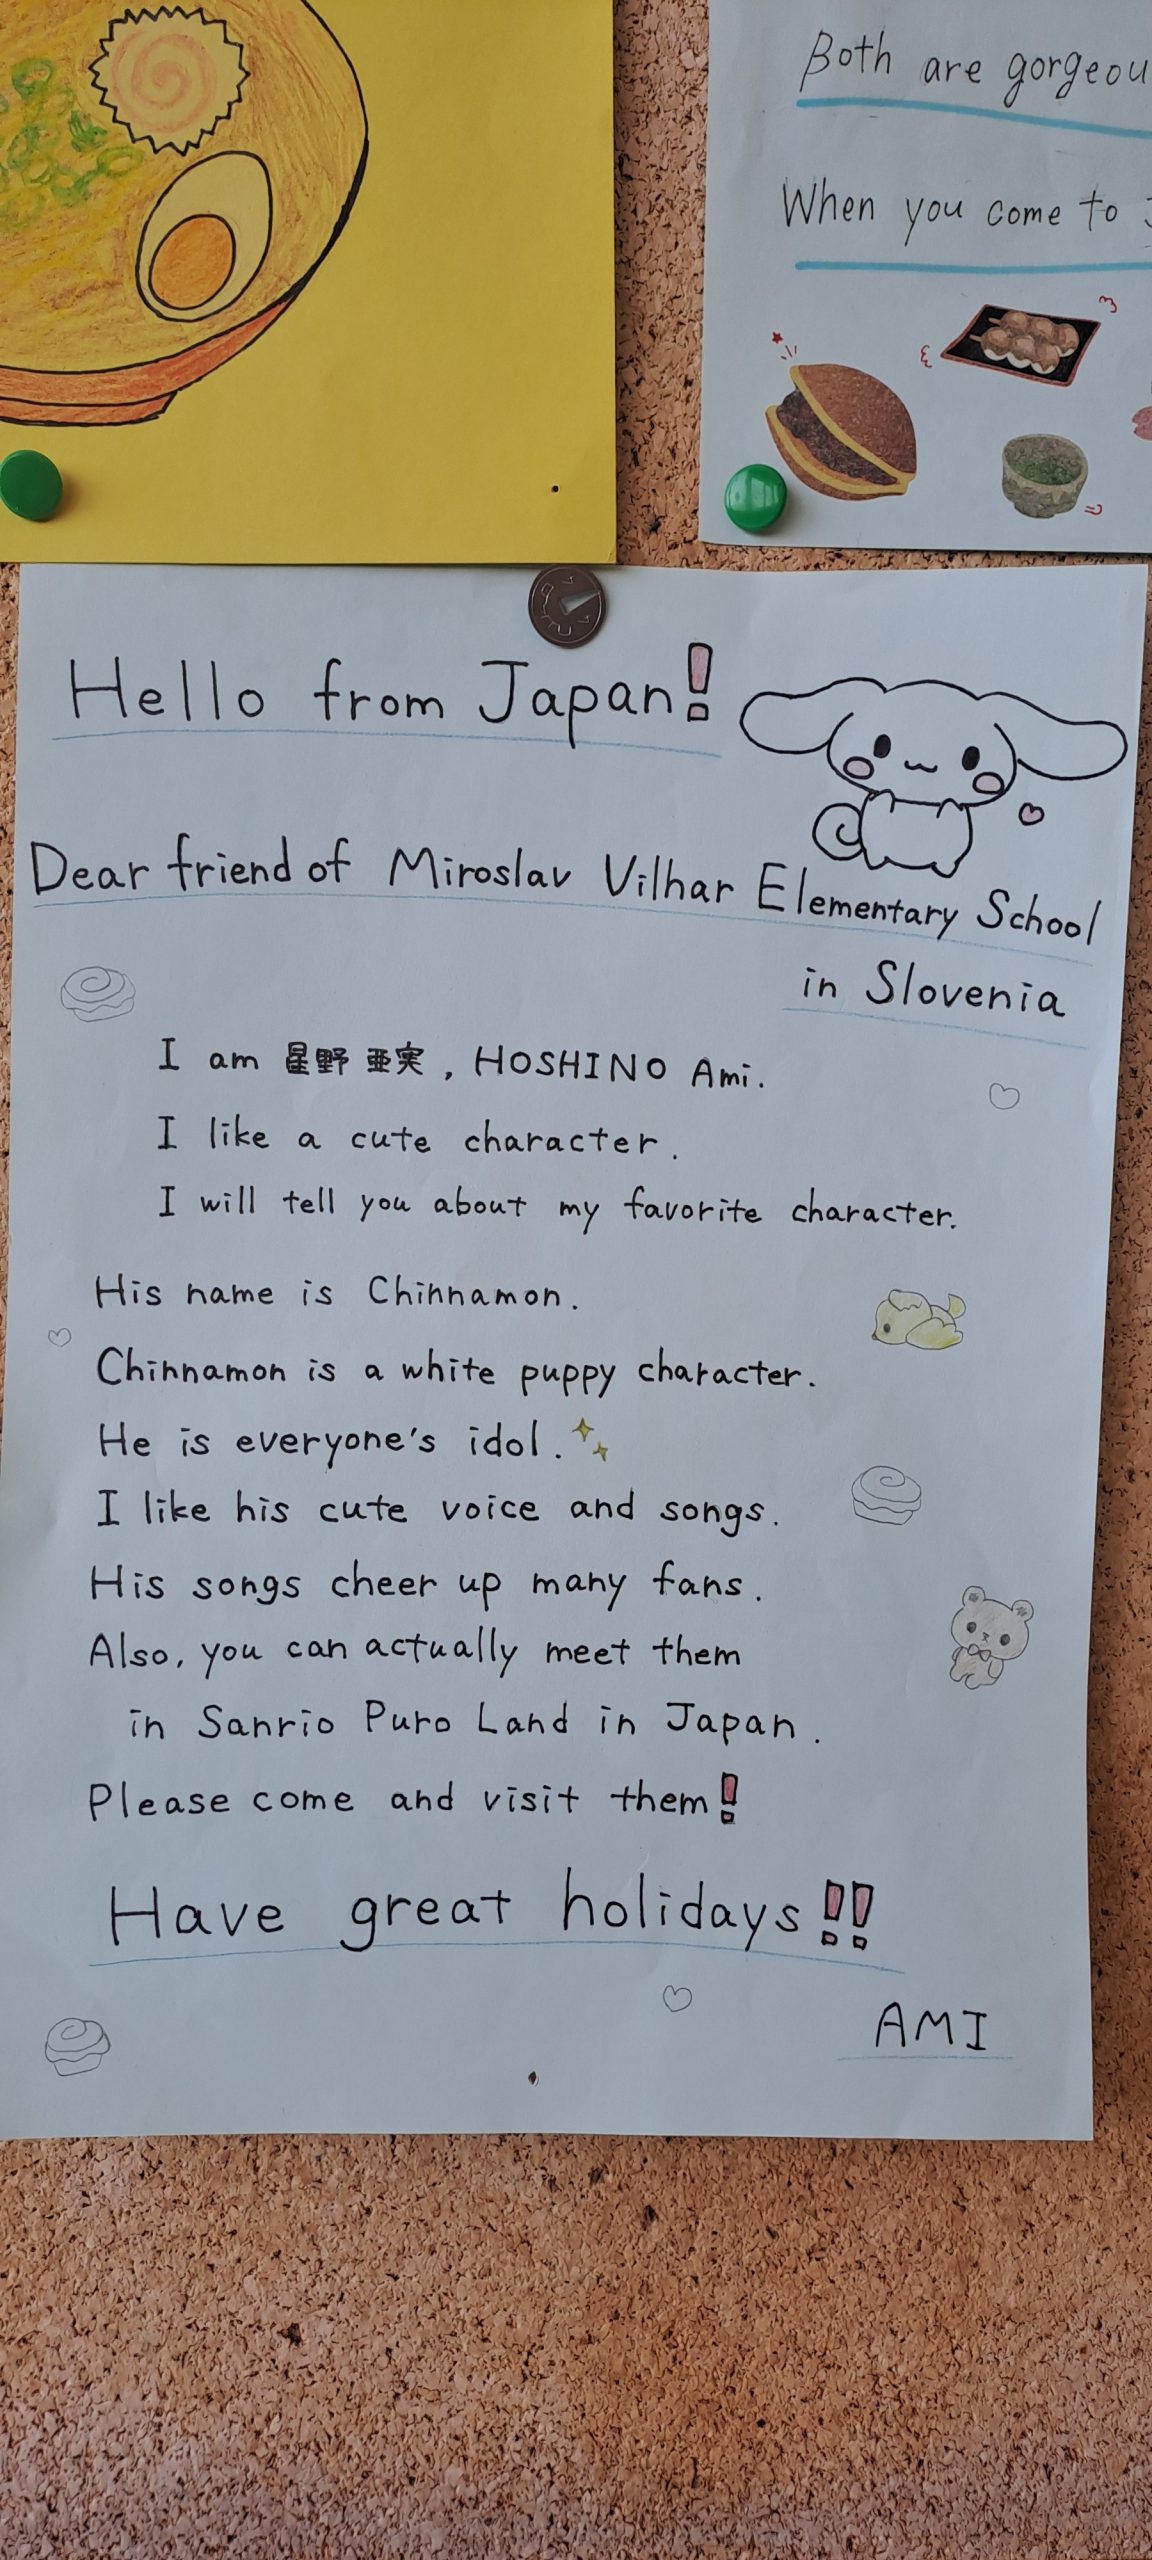 Both are gorgeou
When you come to
Hello from Japan!
Dear friend of Miroslav Vilhar Elementary School
in Slovenia
I am 星野 亜実, HOSHINO Ami.
I like a cute character.
I will tell you about my favorite character.
His name is Chinnamon.
Chinnamon is a white puppy character.
He is everyone's idol.
I like his cute voice and songs.
His songs cheer up many fans.
Also, you can actually meet them
in Sanrio Puro Land in Japan.
Please come and visit them!
Have great holidays!!
AMI